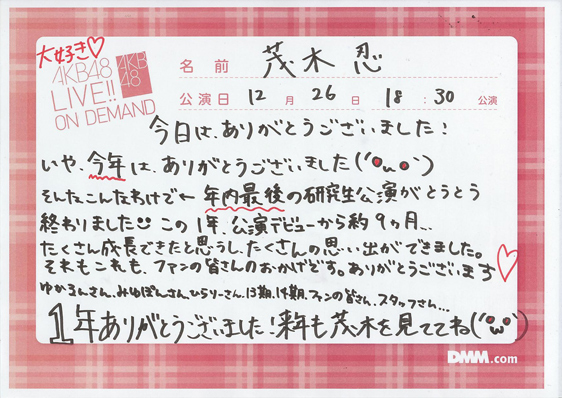 大好き♡
AKB48
LIVE!!
ON DEMAND
AKB
48
名前 茂木 忍
公演日 12月26日 18:30公演
今日は、ありがとうございました!
いや、今年は、ありがとうございました(´•ω•`)
そんなこんなわけで← 年内最後の研究生公演がとうとう
終わりました☺ この1年、公演デビューから約9ヵ月…
たくさん成長できたと思うし、たくさんの思い出ができました。
それもこれも、ファンの皆さんのおかげです。ありがとうございます♡
ゆかるんさん、みゆぽんさん、ひらりーさん、13期、14期、ファンの皆さん、スタッフさん…
1年ありがとうございました!来年も茂木を見ててね(´•ω•`)
DMM.com